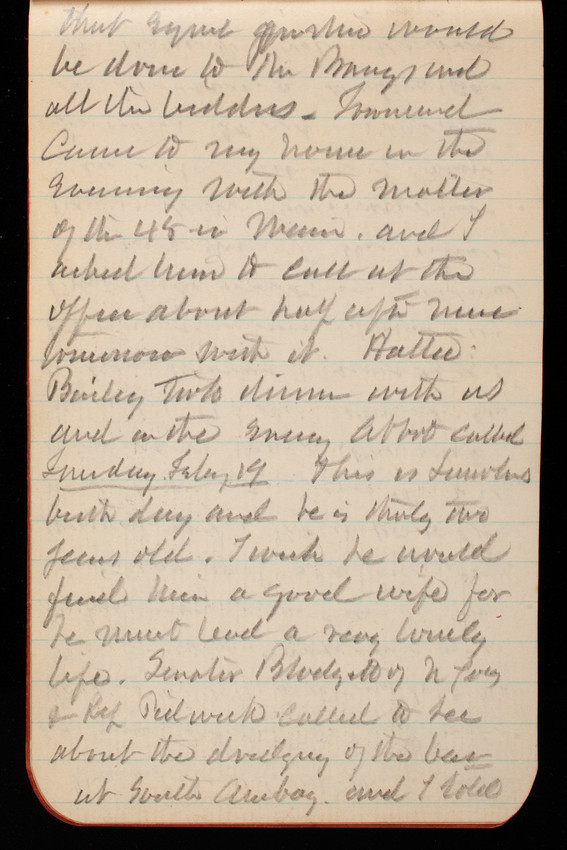 that equal justice would
be done to the Bangs and
all the bidders. Townsend
came to my house in the
evening with the matter
of the 45 in Main. and I
asked him to call at the
office about half after nine
tomorrow with it. Hattie
Bailey took dinner with us
and in the evening Abbot called
Sunday Feby 19 This is Lincolns
birth day and he is thirty two
years old. I wish he would
find him a good wife for
he must lead a very lonely
life. Senator Blodgett of N Jersy
& Rep called to see
about the dredging of the bar
at South Amboy. and I told